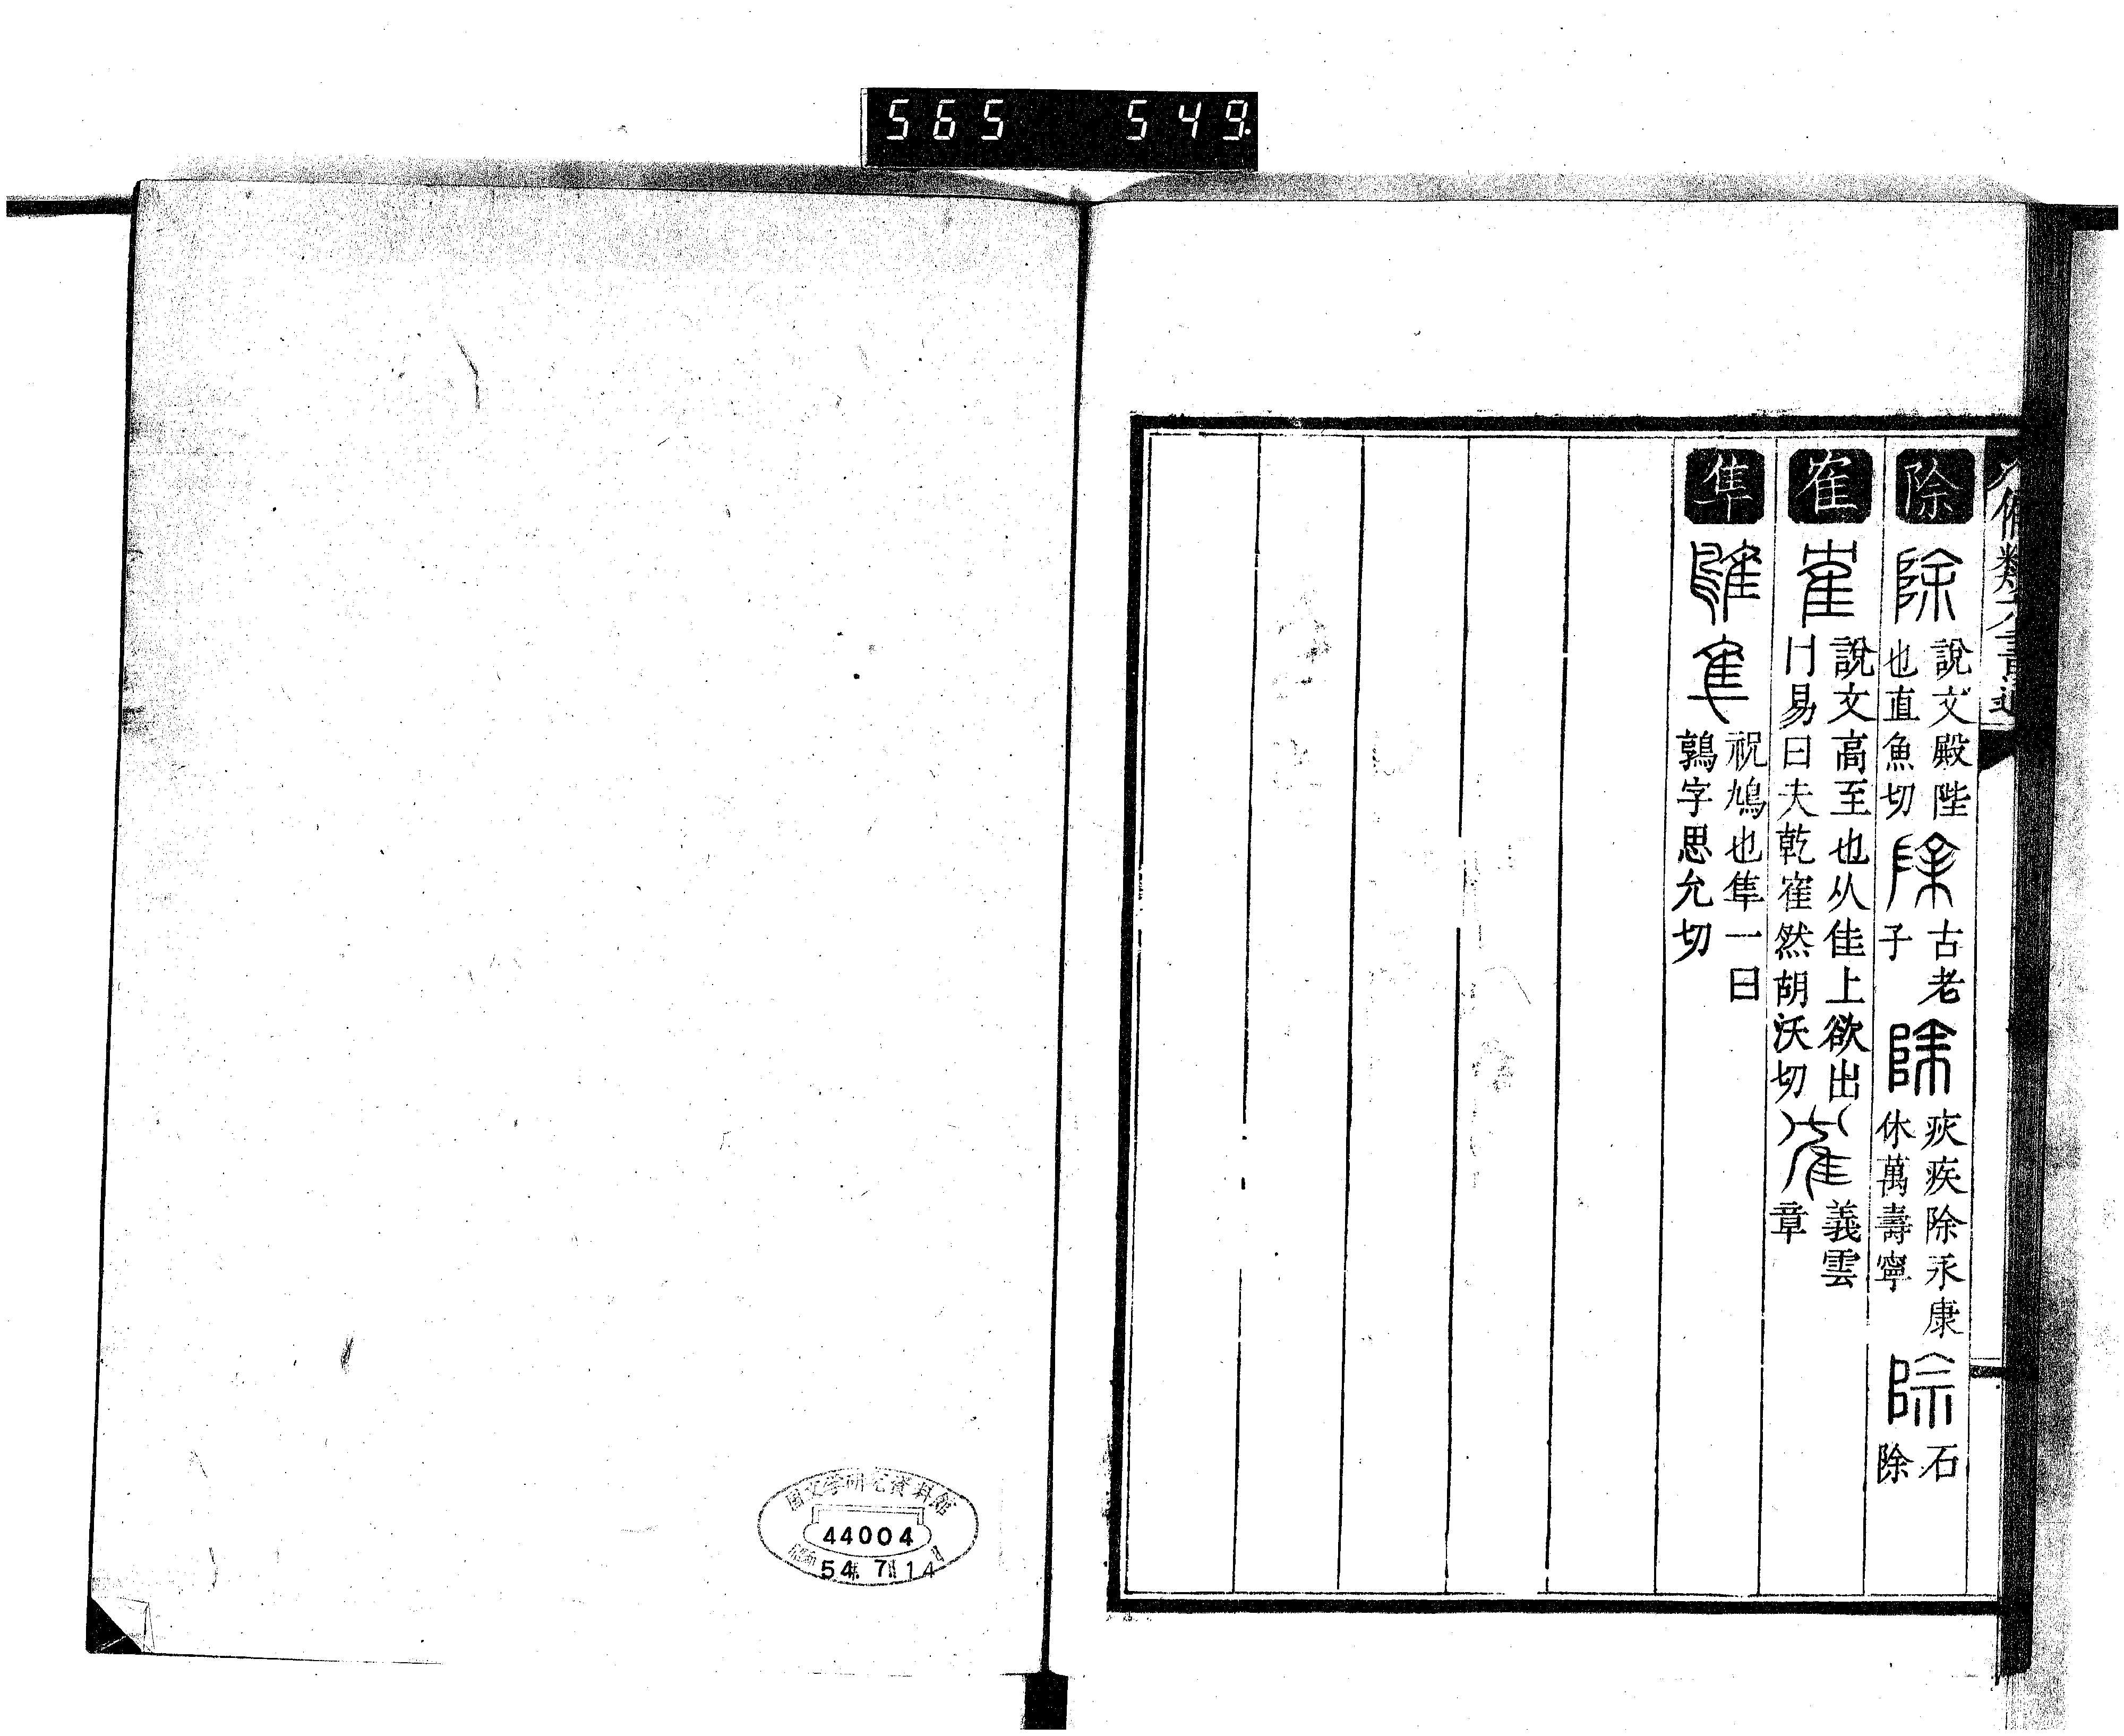 565 549
除 說文殿陛
也直魚切 古老
子 疢疾除永康
休萬壽寧 石
除
隺 說文高至也从隹上欲出
冂易曰夫乾隺然胡沃切 義雲
章
隼 祝鳩也隼一曰
鶉字思允切
國文学研究資料館
44004
54. 7. 14